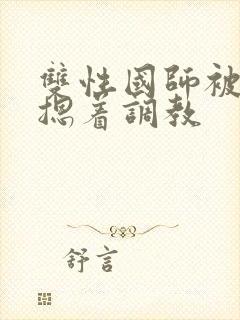 雙性國師被
摁着調教
舒言